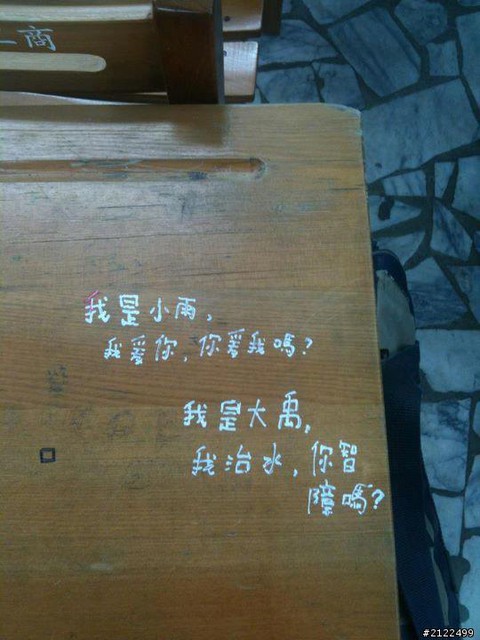 商
我是小雨,
我愛你,你愛我嗎?
我是大禹,
我治水,你智
障嗎?
#2122499